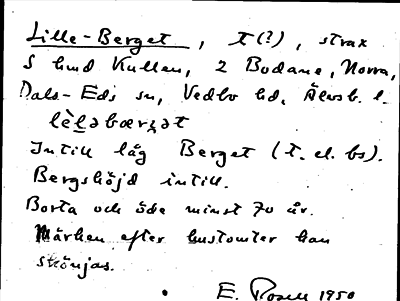 Lille-Berget, t(?), strax
S hmd Kullen, 2 Bodane, Norra,
Dals-Eds sn, Vedbo hd, Älvsb. l.
lèləbærjət
Intill låg Berget (t. el. bs).
Bergshöjd intill.
Borta och öde minst 70 år.
Märken efter hustomter kan
skönjas.
E. Rosell 1950